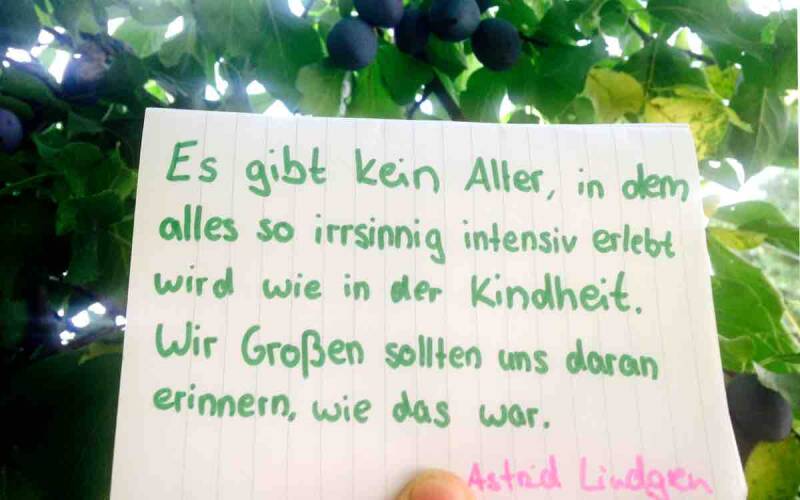 Es gibt kein Alter, in dem
alles so irrsinnig intensiv erlebt
wird wie in der Kindheit.
Wir Großen sollten uns daran
erinnern, wie das war.
Astrid Lindgren